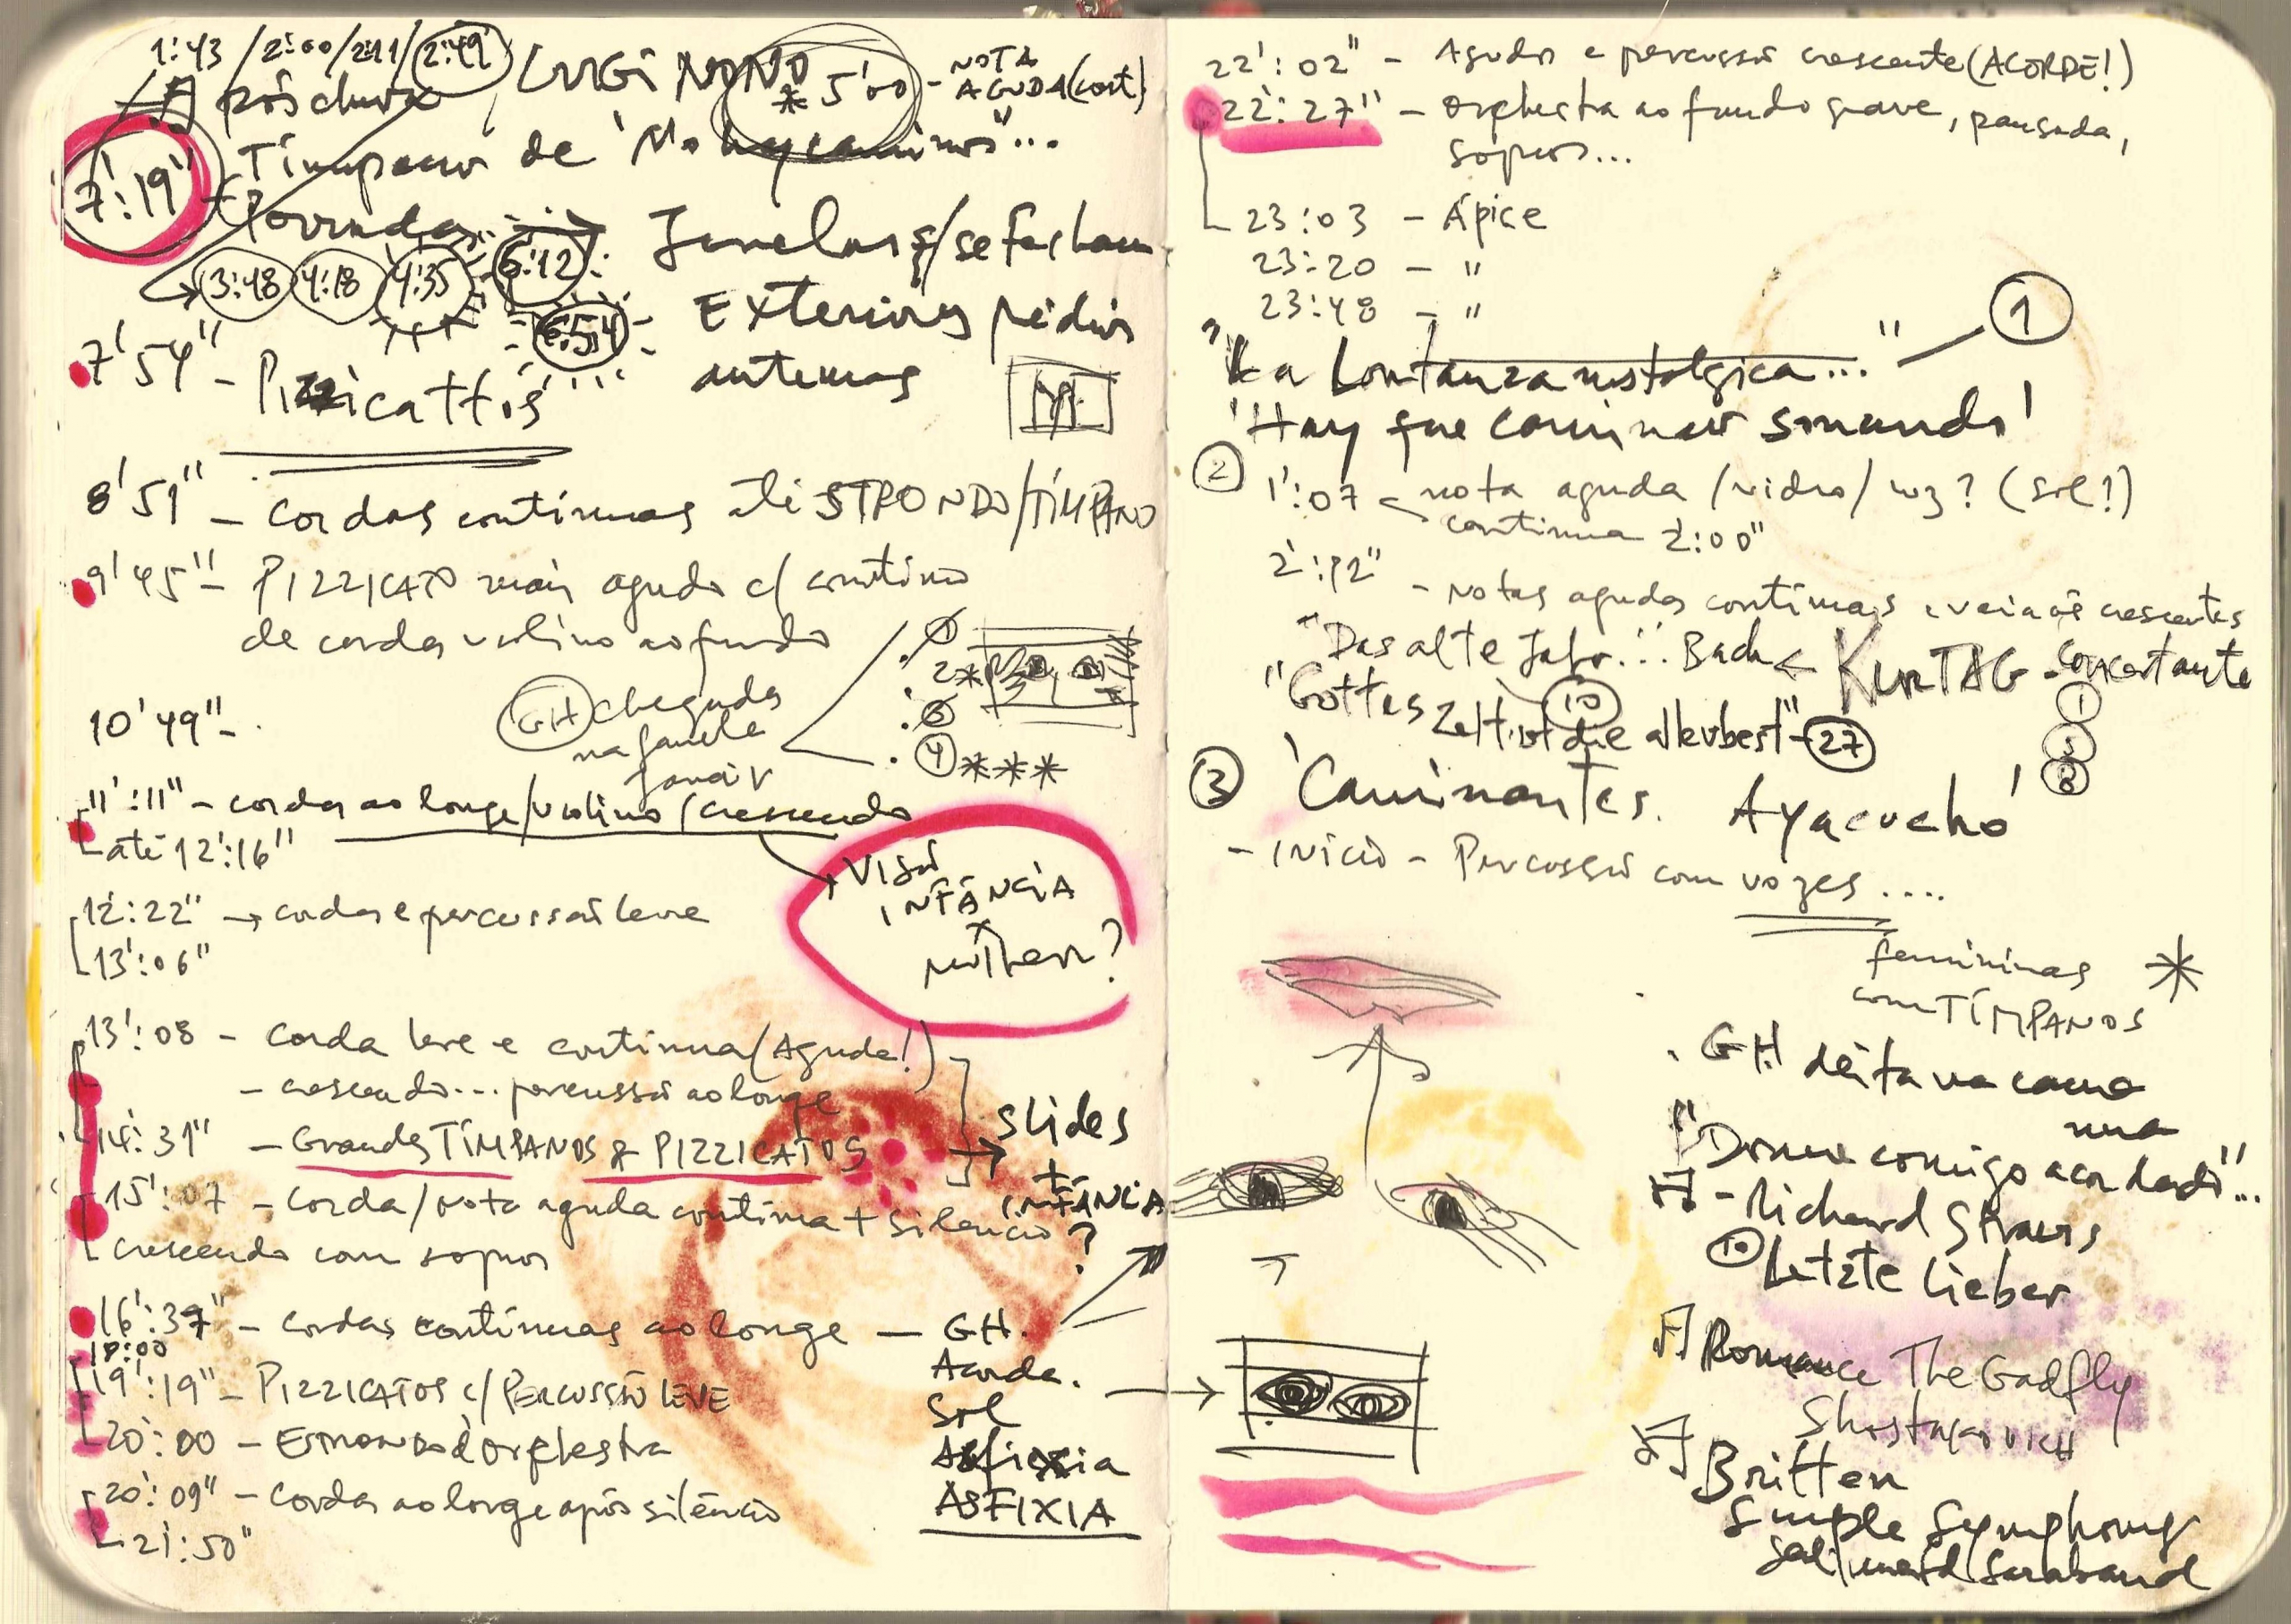 1:43 / 2:00 / 2:11 / 2:49
LUIGI NONO
* 5'00 - NOTA AGUDA (cont)
pós chuva
7':19"
Tímpano de "No hay caminos"...
3:48 4:18 4:35 6:12
6:54
Janelas q/ se fecham
Exteriores prédios
antenas
7'54" - Pizzicattos
8'51" - Cordas contínuas até ESTRONDO/TÍMPANO
9'45" - PIZZICATO mais agudo c/ contínuo
de cordas violino ao fundo
10'49" -
GH chegada
na janela
1
2*
3
4 ***
11':11" - cordas ao longe/violino/crescendo
até 12':16"
VISÃO
INFÂNCIA
MULHER?
12':22" → cordas e percussão leve
13':06"
13':08 - Corda leve e contínua (Aguda!)
- crescendo... percussão ao longe
14':31" - Grandes TÍMPANOS & PIZZICATOS
→ slides
+
INFÂNCIA
?
15':07 - Corda/nota aguda contínua + silêncio
crescendo com sopros
16':37" - cordas contínuas ao longe — GH.
Acorda.
Sol
Asfixia
ASFIXIA
18:00
19':19" - PIZZICATOS c/ PERCUSSÃO LEVE
20':00 - Estrondo d'orquestra
20':09" - Cordas ao longe após silêncio
21':50"
22':02" - Agudos e percussão crescente (ACORDE!)
22':27" - Orquestra ao fundo grave, pausada,
sopros...
23':03 - Ápice
23:20 - "
23:48 - "
"La Lontananza nostalgica..." — 1
'Hay que caminar soñando'
2 1':07 - nota aguda /vidro/ luz? (sol!)
continua 2:00"
2':12" - Notas agudas contínuas e crescentes
"Das alte Jahr..." Bach ← KURTAG
10
"Gottes Zeit ist die allerbest" - 27
1
8
3 'Caminantes. Ayacucho'
- início - Percussão com vozes....
femininas *
com TÍMPANOS
. GH deita na cama
nua
"Dorme comigo acordado"...
- Richard Strauss
10 Letzte Lieder
Romance The Gadfly
Shostakovich
Britten
Simple Symphony
Sentimental Saraband